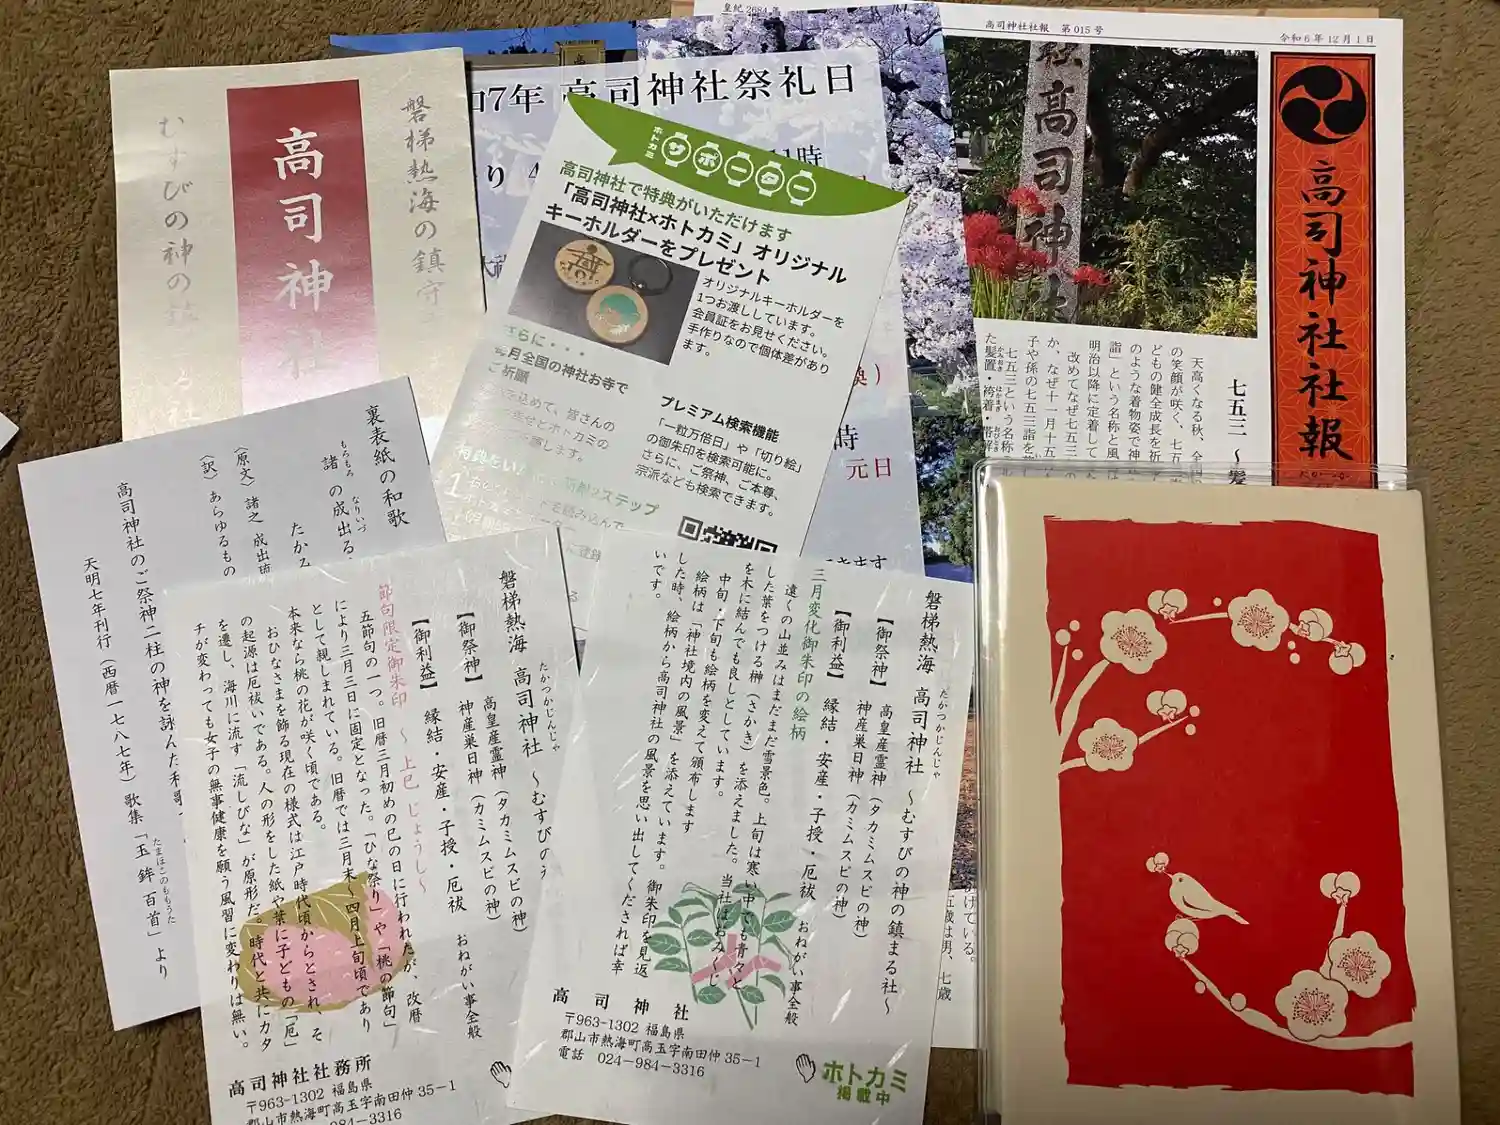 皇紀2684年
高司神社社報 第015号
令和6年12月1日
高司神社社報
高司神
七五三 ～髪
天高くなる秋、全国
の笑顔が咲く、七五
どもの健全成長を祈
のような着物姿で神
詣」という名称と風
明治以降に定着した
改めてなぜ七五三の
か、なぜ十一月十五
子や孫の七五三詣を
七五三という名称
た髪置・袴着・帯解
かみおき はかまぎ おびとき
磐梯熱海の鎮守
高司神社
むすびの神の鎮
7年 高司神社祭礼日
11時
換）
時
元日
ホトカミ
サポーター
高司神社で特典がいただけます
「高司神社×ホトカミ」オリジナル
キーホルダーをプレゼント
オリジナルキーホルダーを
1つお渡ししています。
会員証をお見せください。
手作りなので個体差があり
ます。
さらに・・・
毎月全国の神社お寺で
ご祈願
を込めて、皆さんの
幸せとホトカミの
します。
プレミアム検索機能
「一粒万倍日」や「切り絵」
の御朱印を検索可能に。
さらに、ご祭神、ご本尊、
宗派なども検索できます。
2ステップ
裏表紙の和歌
もろもろ なりいづ
諸の成出る、
たかみ
（原文）諸之 成出
（訳）あらゆるもの
高司神社のご祭神二柱の神を詠んだ和歌、
天明七年刊行（西暦一七八七年） 歌集「玉鉾百首」より
たまほこのももうた
磐梯熱海 高司神社 ～むすびの
たかつかじんじゃ
【御祭神】 高皇産霊神（タカミムスビの神）
神産巣日神（カミムスビの神）
【御利益】 縁結・安産・子授・厄祓 おねがい事全般
節句限定御朱印 ～上巳 じょうし～
五節句の一つ。旧暦三月初めの巳の日に行われたが、改暦
により三月三日に固定となった。「ひな祭り」や「桃の節句」
として親しまれている。旧暦では三月末～四月上旬頃であり
本来なら桃の花が咲く頃である。
おひなさまを飾る現在の様式は江戸時代頃からとされ、そ
の起源は厄祓いである。人の形をした紙や葉に子どもの「厄」
を遷し、海川に流す「流しびな」が原形だ。時代と共にカタ
チが変わっても女子の無事健康を願う風習に変わりは無い。
高司神社社務所
〒963-1302 福島県
郡山市熱海町高玉字南田仲35-1
984-3316
磐梯熱海 高司神社 ～むすびの神の鎮まる社～
たかつかじんじゃ
【御祭神】 高皇産霊神（タカミムスビの神）
神産巣日神（カミムスビの神）
【御利益】 縁結・安産・子授・厄祓 おねがい事全般
三月変化御朱印の絵柄
遠くの山並みはまだまだ雪景色。上旬は寒い中でも青々と
した葉をつける榊（さかき）を添えました。当社はおみくじ
を木に結んでも良しとしています。
中旬・下旬も絵柄を変えて頒布します
絵柄は「神社境内の風景」を添えています。御朱印を見返
した時、絵柄から高司神社の風景を思い出してくだされば幸
いです。
高司神社
〒963-1302 福島県
郡山市熱海町高玉字南田仲35-1
電話 024-984-3316
ホトカミ
掲載中
けている。
五歳は男、七歳